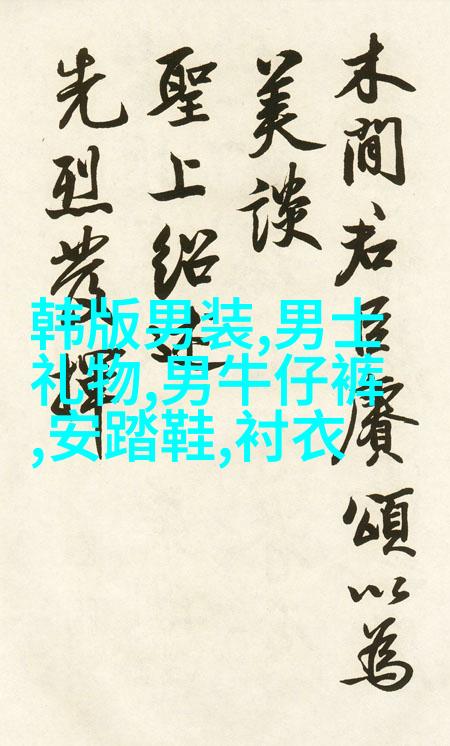 木間君臣賡頌以為
美談
聖上紹述
先烈發揮
韩版男装,男士
礼物,男牛仔裤
,安踏鞋,衬衣